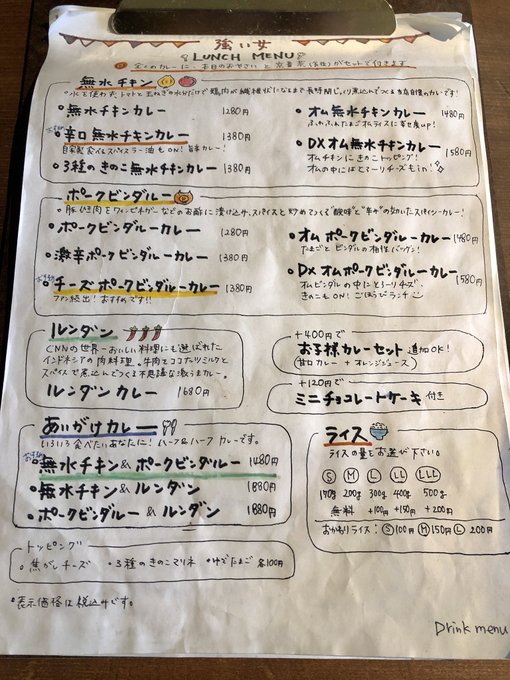 強い女
LUNCH MENU
全てのカレーに、本日のおやさいと
がセットで付きます
無水チキン
水を使わず、トマトと玉ねぎの水分だけで鶏肉が繊維状になるまで長時間じっくり煮込んでつくる当店自慢のカレーです!
無水チキンカレー 1280円
辛口無水チキンカレー 1380円
自家製食べるスパイスラー油もON! 旨辛カレー!
3種のきのこ無水チキンカレー 1380円
オム無水チキンカレー 1480円
ふわふわたまごオムライスに変身!
DXオム無水チキンカレー 1580円
オムチキンにきのこトッピング!
オムの中にはとろーりチーズもin!
ポークビンダルー
豚ひき肉をワインビネガーなどのお酢に漬け込み、スパイスと炒めてつくる"酸味"と"辛み"の効いたスパイシーカレー!
ポークビンダルーカレー 1280円
激辛ポークビンダルーカレー 1380円
おすすめ
チーズポークビンダルーカレー 1380円
ファン続出!おすすめです!!
オムポークビンダルーカレー 1480円
たまごとビンダルの相性バツグン!
DXオムポークビンダルーカレー 1580円
オムビンダルの中にとろーりチーズ
きのこもON! ごほうびランチ
ルンダン
CNNの世界一おいしい料理にも選ばれた
インドネシアの肉料理。牛肉とココナッツミルクと
スパイスで煮込んでつくる不思議な激うまカレー。
ルンダンカレー 1680円
+400円で
お子様カレーセット 追加OK!
(甘口カレー + オレンジジュース)
+120円で
ミニチョコレートケーキ 付き
あいがけカレー
いろいろ食べたいあなたに!ハーフ&ハーフカレーです。
おすすめ
無水チキン&ポークビンダルー 1480円
無水チキン&ルンダン 1880円
ポークビンダルー&ルンダン 1880円
ライス
ライスの量をお選び下さい。
S M L LL LLL
170g 200g 300g 400g 500g
無料 +100円 +150円 +200円
おかわりライス:S100円 M150円 L200円
トッピング
焦がしチーズ ・3種のきのこマリネ ・ゆでたまご 各100円
表示価格は税込みです。
Drink menu